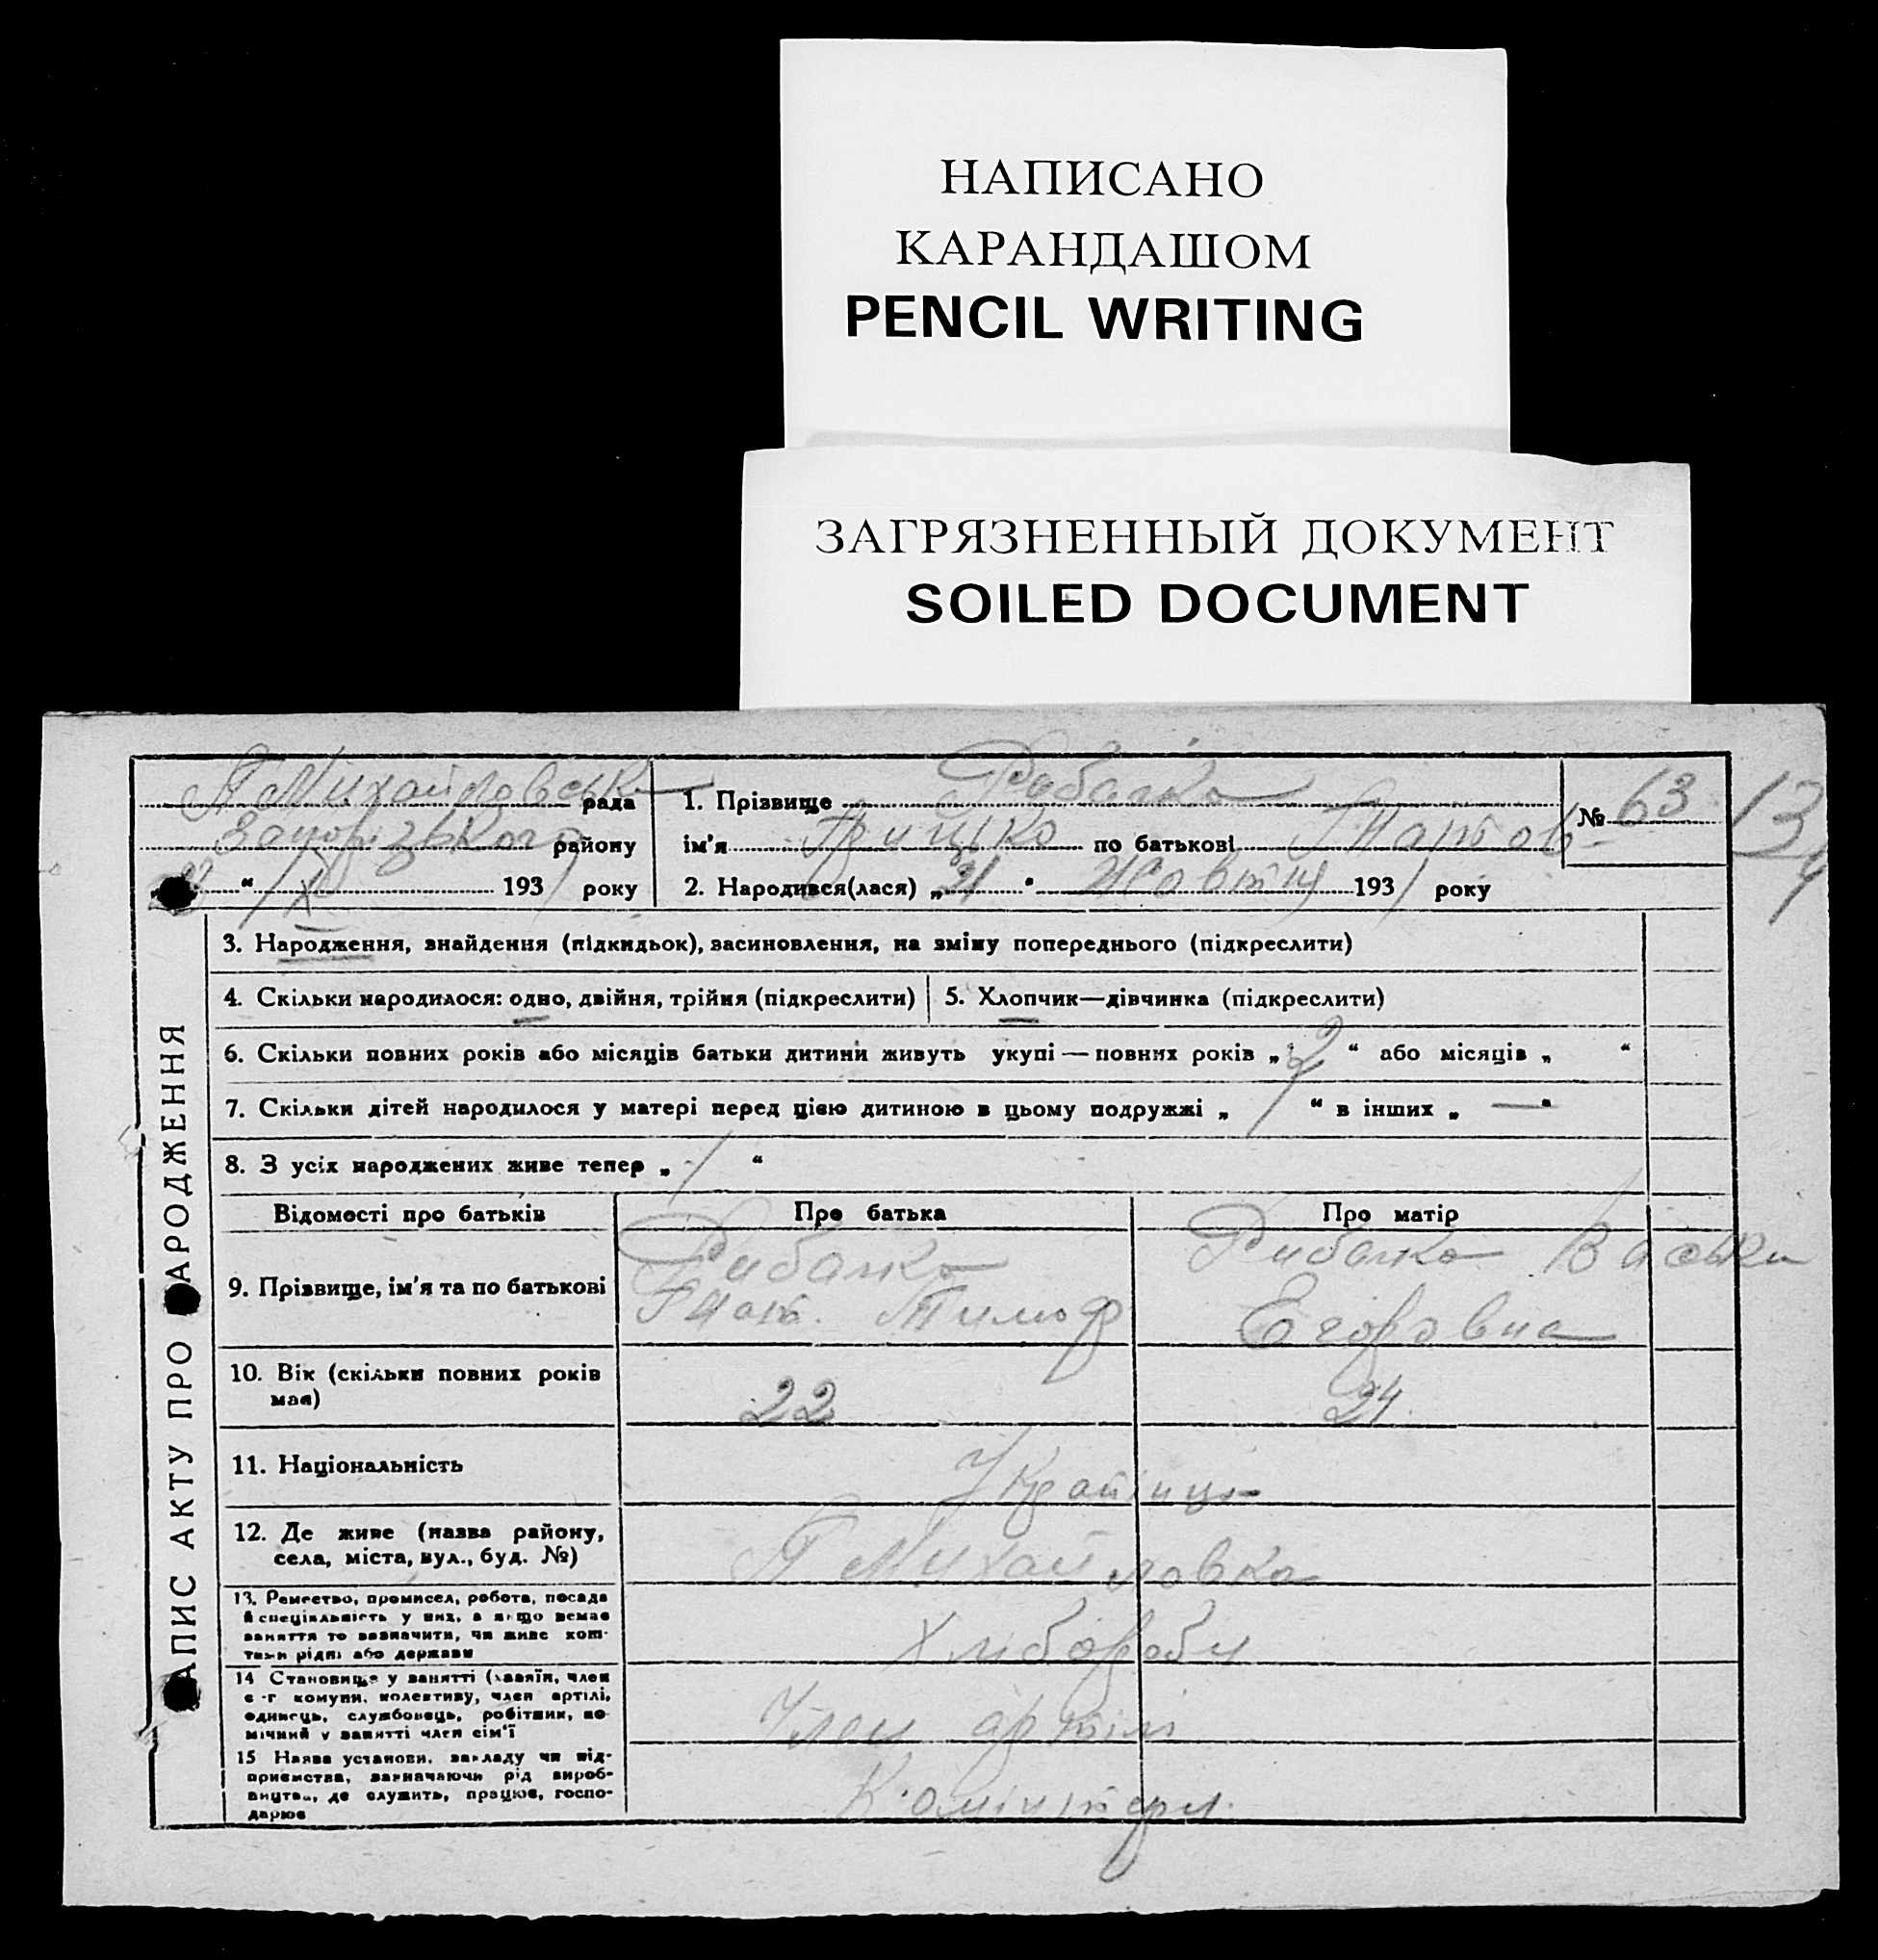 НАПИСАНО
КАРАНДАШОМ
PENCIL WRITING
ЗАГРЯЗНЕННЫЙ ДОКУМЕНТ
SOILED DOCUMENT
рада
Запорізького району
" /XI 1931 року
1. Прізвище Рибалко
ім'я Грицько по батькові
2. Народився(лася) „31" Жовтня 1931 року
№ 63
13
АПИС АКТУ ПРО АРОДЖЕННЯ
3. Народження, знайдення (підкидьок), засиновлення, на зміну попереднього (підкреслити)
4. Скільки народилося: одно, двійня, трійня (підкреслити)
5. Хлопчик—дівчинка (підкреслити)
6. Скільки повних років або місяців батьки дитини живуть укупі — повних років „2" або місяців „ "
7. Скільки дітей народилося у матері перед цією дитиною в цьому подружжі „/" в інших „—"
8. З усіх народжених живе тепер „/"
Відомості про батьків Про батька Про матір
9. Прізвище, ім'я та по батькові
Рибалко
Тимоф
Рибалко
Егоровна
10. Вік (скільки повних років
має)
22
24
11. Національність
Україниці
12. Де живе (назва району,
села, міста, вул., буд. №)
Михайловка
13. Ремество, промисел, робота, посада
й спеціяльність у них, а якщо немає
заняття то зазначити, чи живе кош-
тами рідні або держави
Хлібороби
14 Становище у занятті (хазяїн, член
с-г комуни, колективу, член артілі,
одинець, службовець, робітник, по-
мічний у занятті член сім'ї
Член артілі
15 Назва установи, закладу чи під-
приємства, зазначаючи рід вироб-
ництва, де служить, працює, госпо-
дарює
Комінтерн